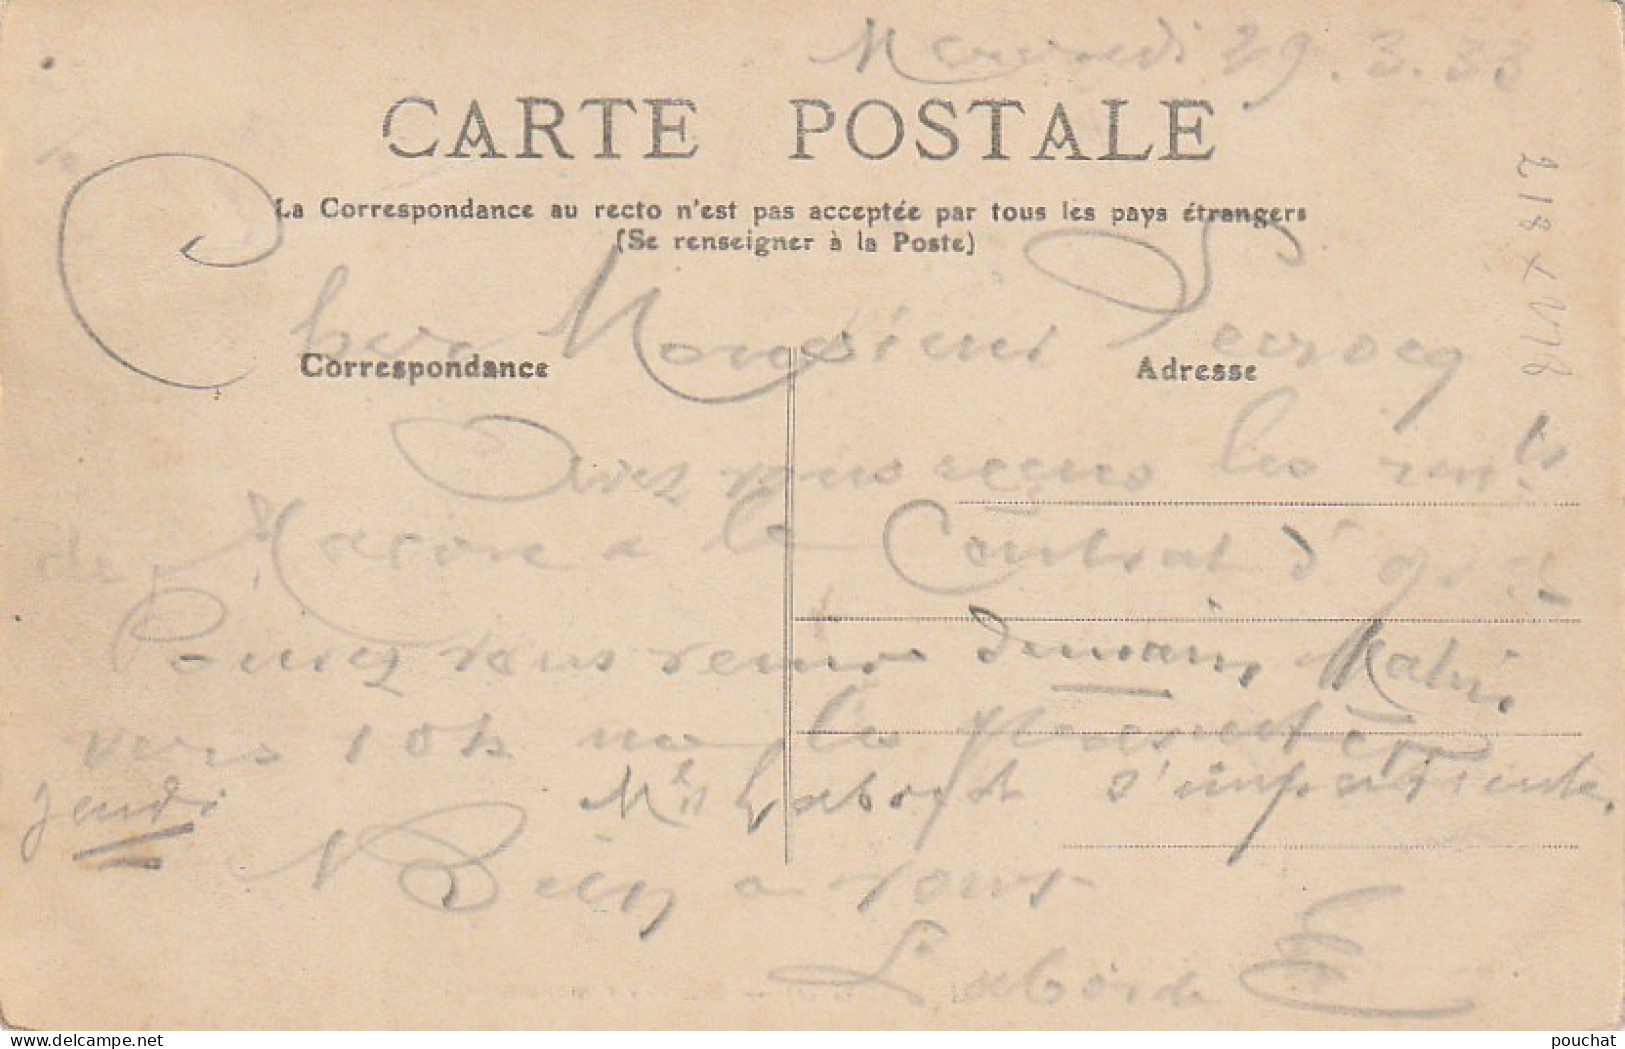 Mercredi 29.3.33
CARTE POSTALE
La Correspondance au recto n'est pas acceptée par tous les pays étrangers
(Se renseigner à la Poste)
218 x
Cher Monsieur
Correspondance
Adresse
Avez vous reçus les
de Macon a le Contrat d'
Pouvez vous venir demain Matin
vers 10h les
jeudi
Laborde s'impatiente.
Bien a vous
Laborde E
pouchat